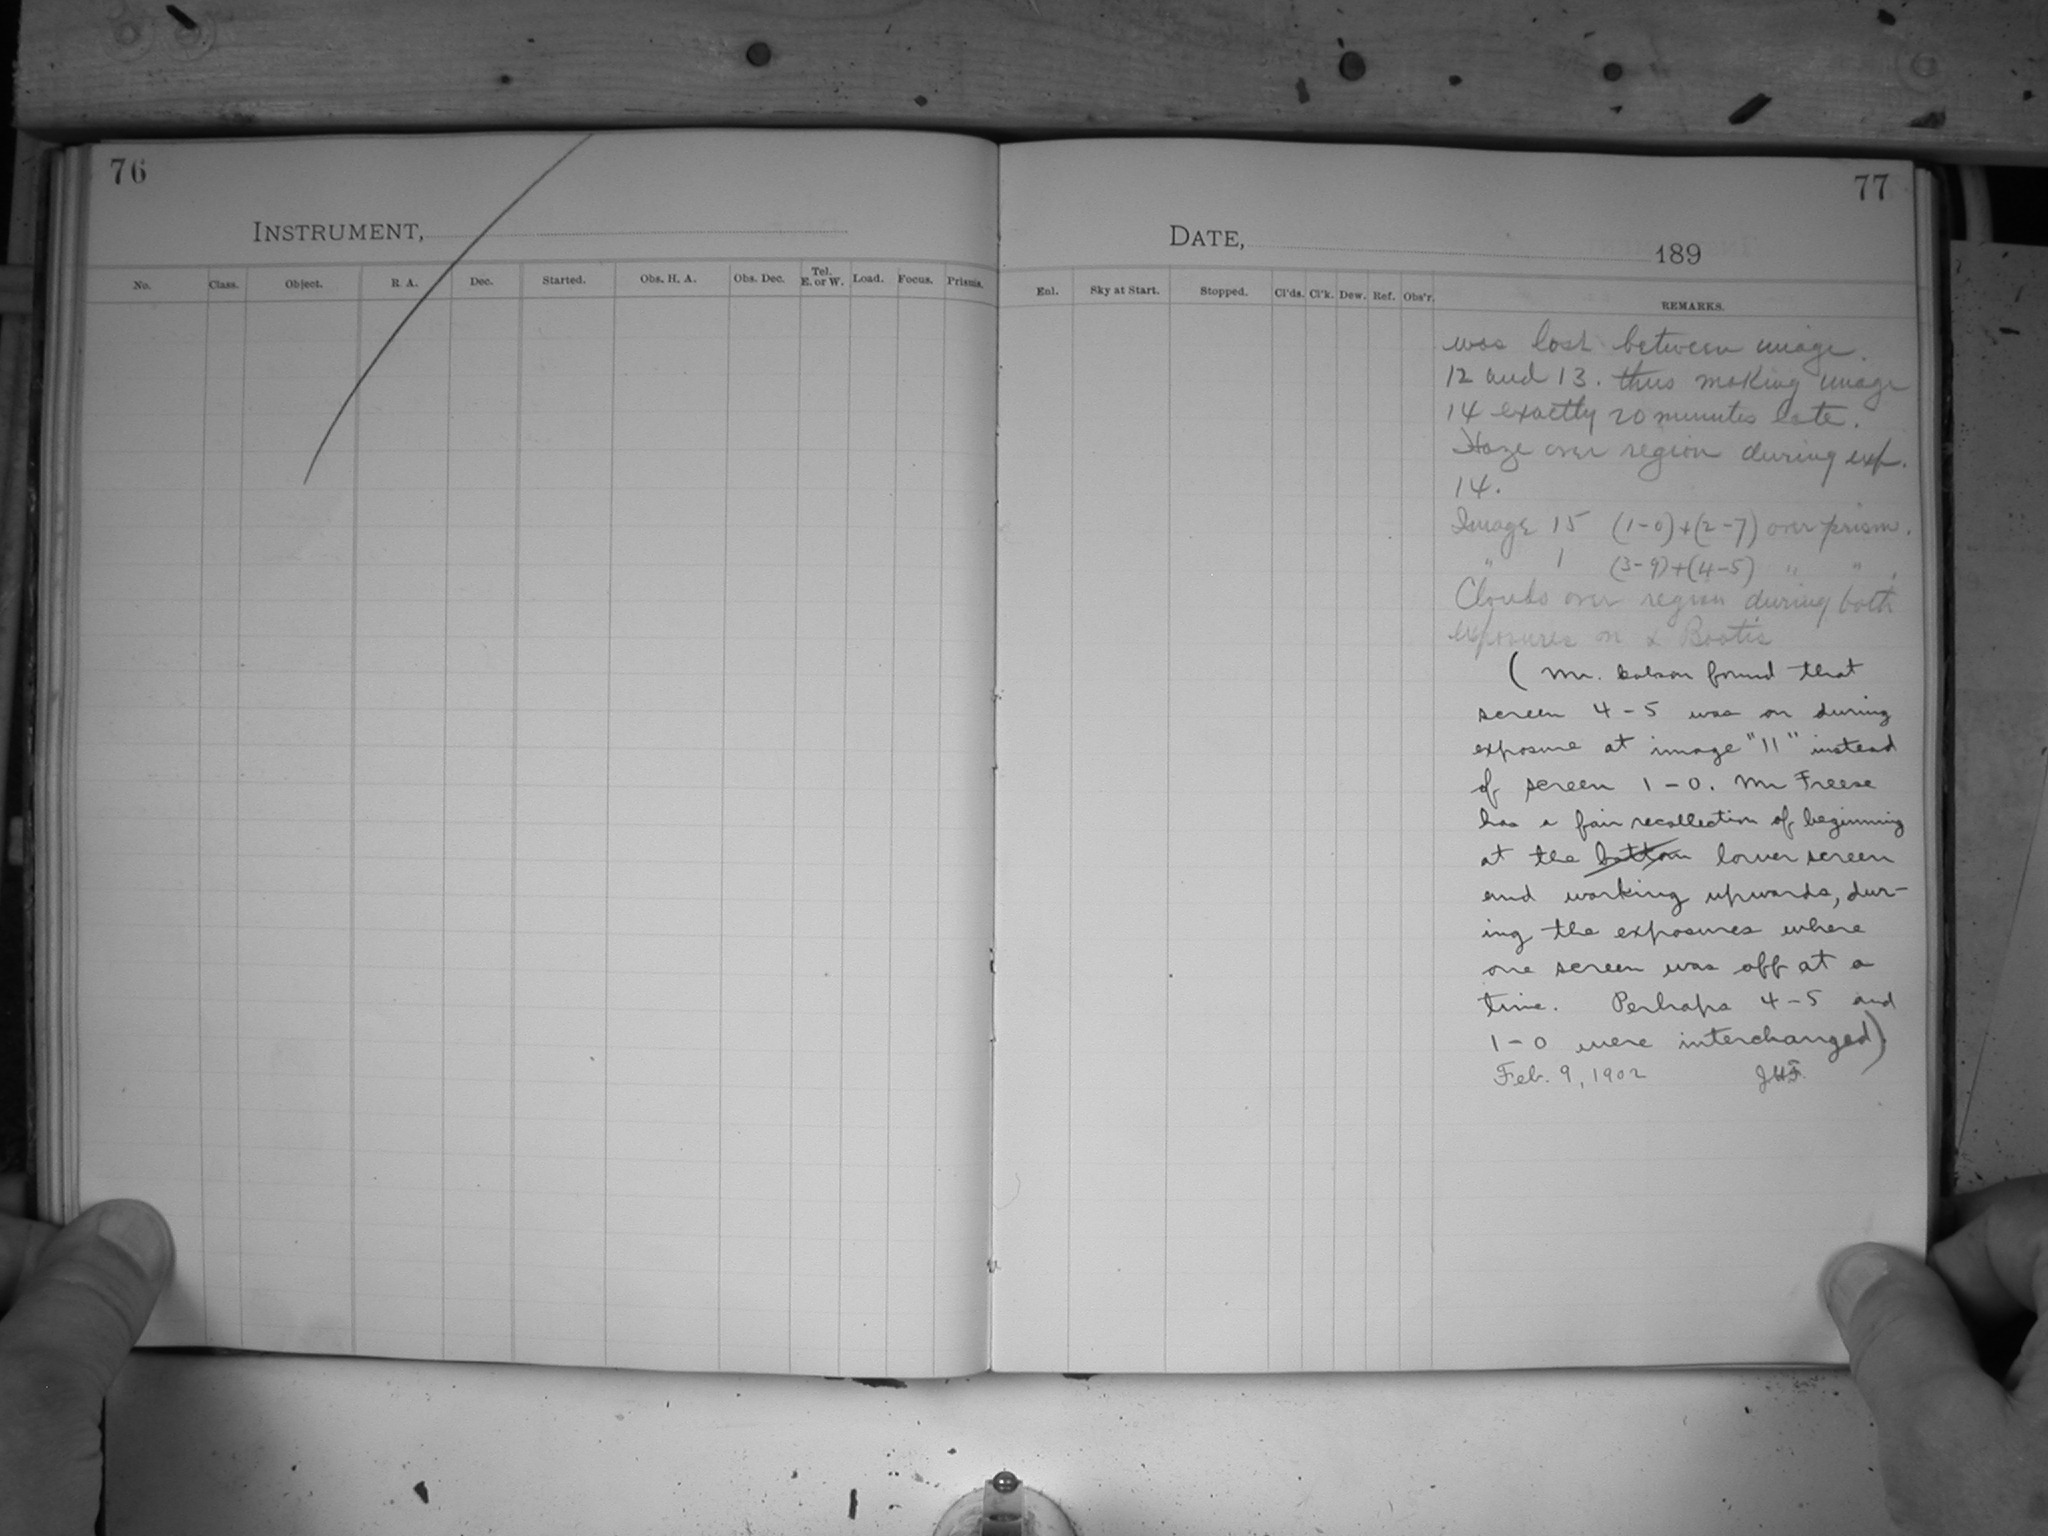 76
INSTRUMENT,
No. Class. Object. R. A. Dec. Started. Obs. H. A. Obs. Dec. Tel. E. or W. Load. Focus. Prisms.
77
DATE, 189
Enl. Sky at Start. Stopped. Cl'ds. Cl'k. Dew. Ref. Obs'r. REMARKS.
was lost between image
12 and 13. thus making image
14 exactly 20 minutes late.
Haze over region during exp.
14.
Image 15 (1-0)+(2-7) over prism.
" 1 (3-9)+(4-5) " " .
Clouds over region during both
exposures on α Bootis
( Mr. found that
screen 4-5 was on during
exposure at image "11" instead
of screen 1-0. Mr Freese
has a fair recollection of beginning
at the bottom lower screen
and working upwards, dur-
ing the exposures where
one screen was off at a
time. Perhaps 4-5 and
1-0 were interchanged)
Feb. 9, 1902 JHF.